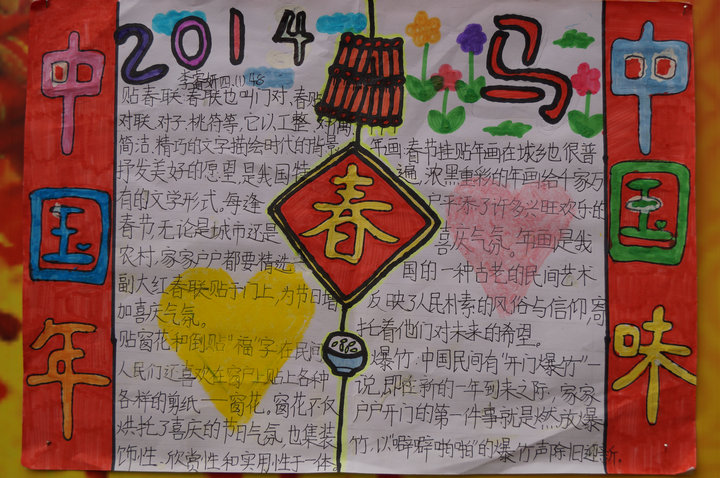 中国年
2014
马
中国味
春
李 妍四.(1)46
贴春联,春联也叫门对、春贴
对联、对子、桃符等,它以工整、对偶
简洁、精巧的文字描绘时代的背景
抒发美好的愿望,是我国特
有的文学形式。每逢
春节无论是城市还是
农村,家家户户都要精选
副大红春联贴于门上,为节日增
加喜庆气氛。
贴窗花和倒贴“福”字在民间
人民们还喜欢在窗户上贴上各种
各样的剪纸——窗花。窗花不仅
烘托了喜庆的节日气氛,也集装
饰性、欣赏性和实用性于一体。
年画,春节挂贴年画在城乡也很普
遍,浓黑重彩的年画给千家万
户平添了许多兴旺欢乐的
喜庆气氛。年画是我
国的一种古老的民间艺术
反映了人民朴素的风俗与信仰,寄
托着他们对未来的希望。
爆竹:中国民间有“开门爆竹”一
说,即在新的一年到来之际,家家
户户开门的第一件事就是燃放爆
竹,以“噼噼啪啪”的爆竹声除旧迎新。